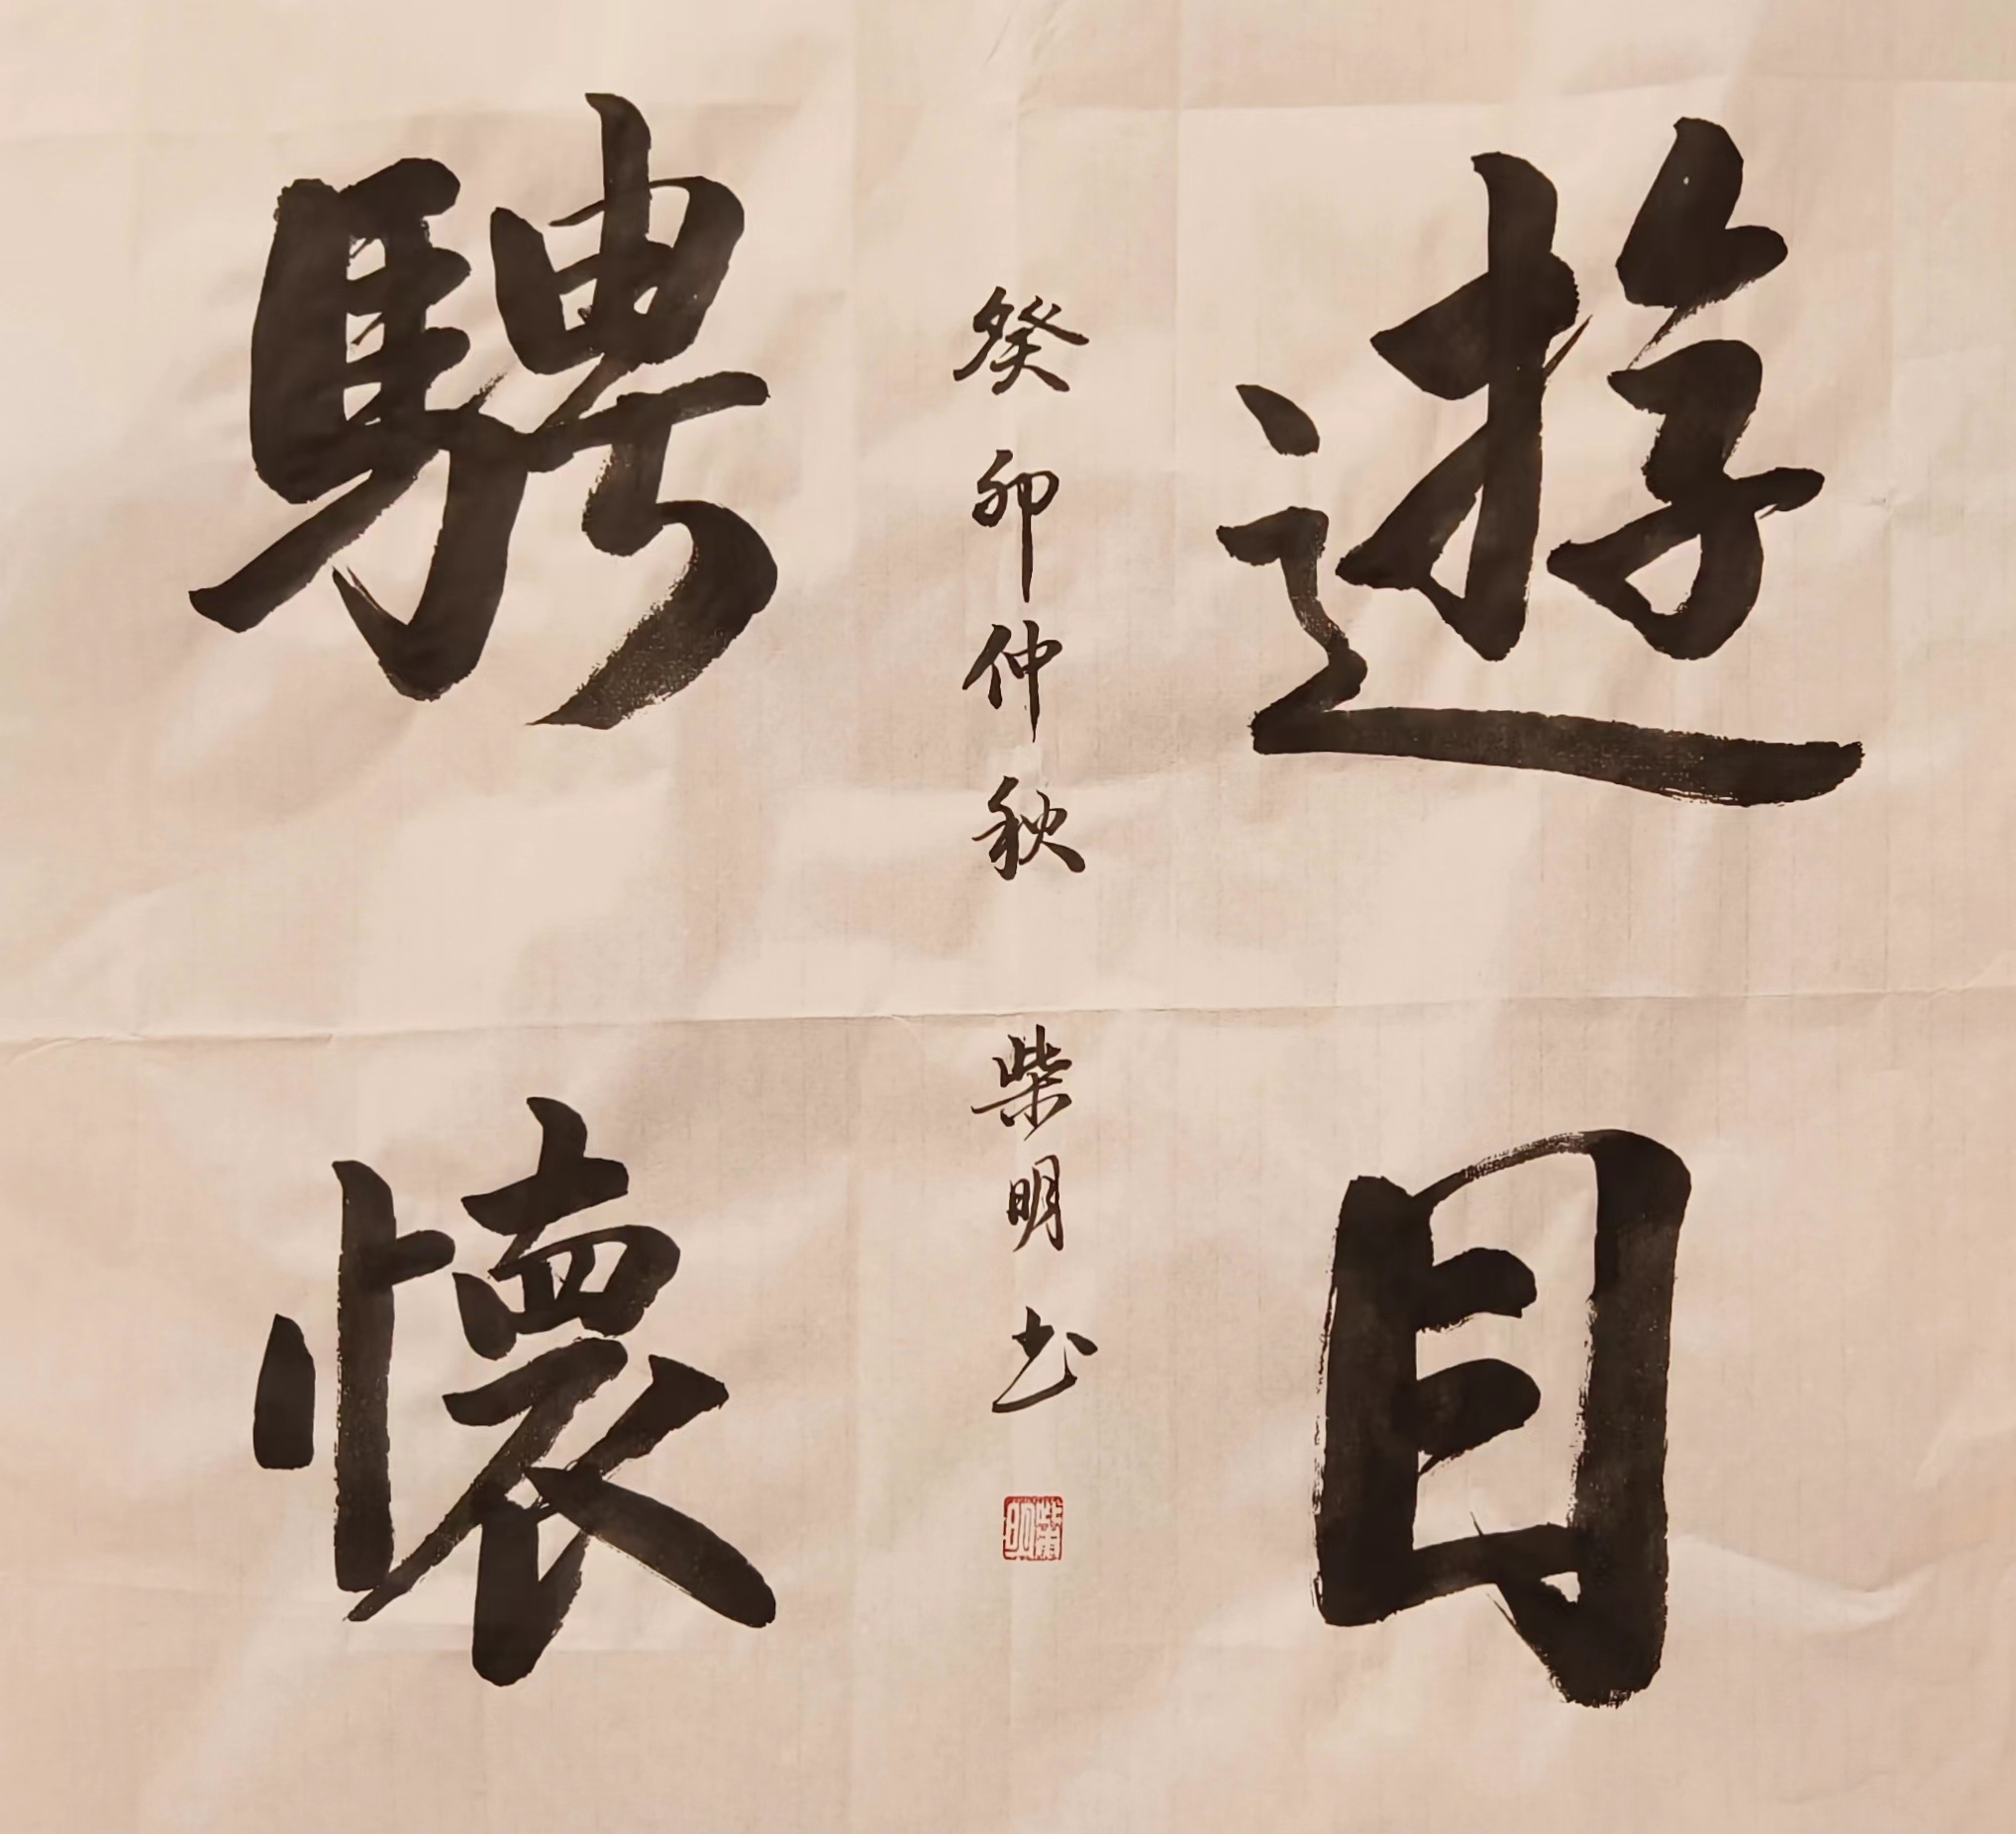 遊目
騁懷
癸卯仲秋 柴明书
柴明